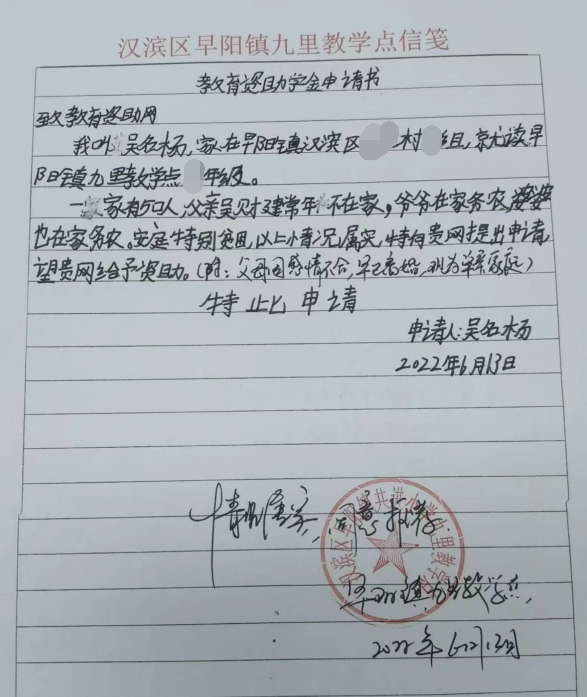 汉滨区早阳镇九里教学点信笺
教育资助学金申请书
致教育资助网
我叫吴名杨,家在早阳镇汉滨区 村 组,就读早
阳镇九里教学点 年级。
一家有5口人,父亲吴财建常年不在家,爷爷在家务农,婆婆
也在家务农。家庭特别贫困,以上情况属实,特向贵网提出申请,
望贵网给予资助。(附:父母因感情不合,早已离婚,现为单亲家庭)
特此申请
申请人:吴名杨
2022年6月13日
情况属实,同意推荐。
早阳镇九里教学点
2022年6月13日